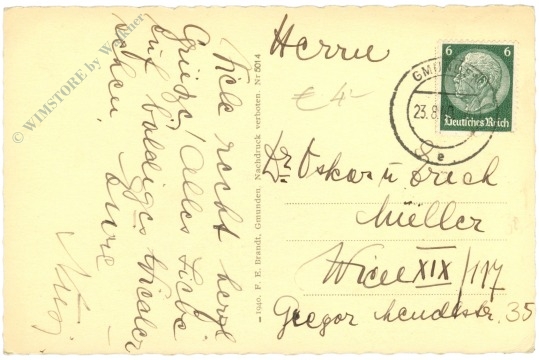 Viele recht herzl
Grüsse! Alles Liebe
Auf baldiges Wieder
sehen, Eure
© WIMSTORE by Werkner
1940. F. E. Brandt, Gmunden. Nachdruck verboten. Nr 5014
Herrn
€ 4-
6 6
Deutsches Reich
GMUNDEN
23.8.
e
Dr. Oskar u Erich
Müller
Wien XIX/117
Gregor Mendelstr. 35